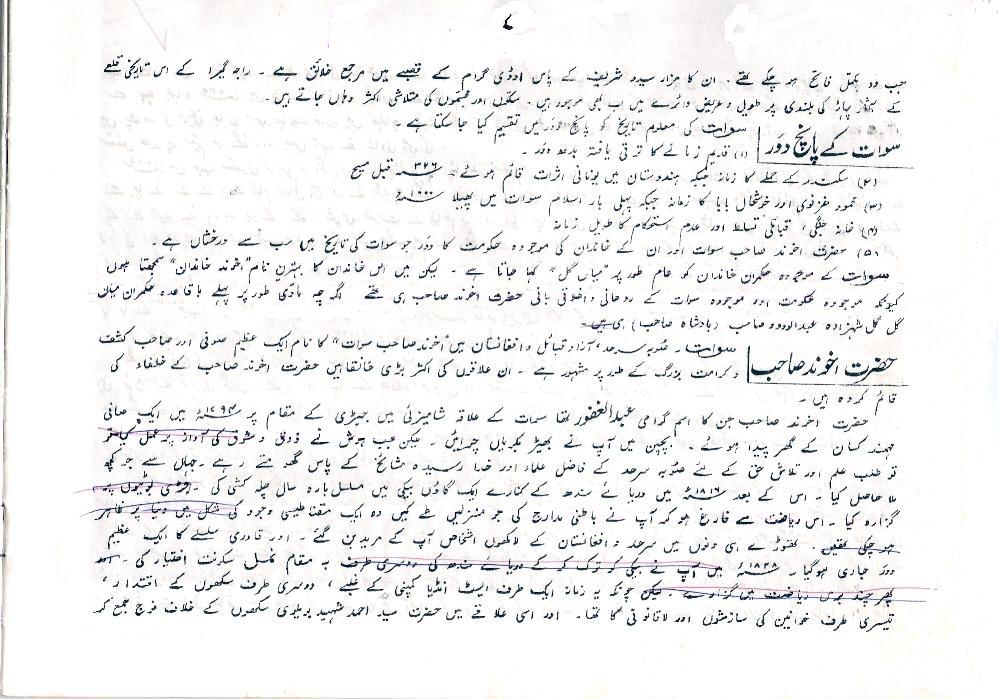 ۷
جب وہ پہلی فاتح ہو چکے تھے۔ ان کا مزار سیدو شریف کے پاس اوڈی گرام کے قصبے میں مرجع خلائق ہے۔ راجہ گیرا کے اس تاریخی قلعے
کے آثار پہاڑ کی بلندی پر طویل و عریض دائرے میں اب بھی موجود ہیں۔ سکوں اور مجسموں کی متلاشی اکثر وہاں جاتے ہیں۔
سوات کے پانچ دَور
سوات کی معلوم تاریخ کو پانچ دَور میں تقسیم کیا جا سکتا ہے۔
(۱) قدیم زمانے کا ترقی یافتہ بدھ دور۔
(۲) سکندر کے حملے کا زمانہ جبکہ ہندوستان میں یونانی اثرات قائم ہوئے۔ ۳۲۶ قبل مسیح
(۳) محمود غزنوی اور خوشحال بابا کا زمانہ جبکہ پہلی بار اسلام سوات میں پھیلا ۱۰۰۰ء
(۴) خانہ جنگی، قبائلی تسلط اور عدم استحکام کا طویل زمانہ
(۵) حضرت اخوند صاحب سوات اور ان کے خاندان کی موجودہ حکومت کا دَور جو سوات کی تاریخ میں سب سے درخشاں ہے۔
سوات کے موجودہ حکمران خاندان کو عام طور پر "میاں گل" کہا جاتا ہے۔ لیکن میں اس خاندان کا بہترین نام "اخوند خاندان" سمجھتا ہوں
کیونکہ موجودہ حکومت اور موجودہ سوات کے روحانی و اخلاقی بانی حضرت اخوند صاحب ہی تھے اگرچہ مادّی طور پر پہلے باقاعدہ حکمران میاں
گل گل شہزادہ عبدالودود صاحب (بادشاہ صاحب) ہی ہیں۔
حضرت اخوند صاحب
سوات۔ صوبہ سرحد، آزاد قبائل و افغانستان میں "اخوند صاحب سوات" کا نام ایک عظیم صوفی اور صاحب کشف
و کرامت بزرگ کے طور پر مشہور ہے۔ ان علاقوں کی اکثر بڑی خانقاہیں حضرت اخوند صاحب کے خلفاء کی
قائم کردہ ہیں۔
حضرت اخوند صاحب جن کا اسم گرامی عبدالغفور تھا سوات کے علاقہ شامیزئی میں جبڑی کے مقام پر ۱۷۹۴ء میں ایک صافی
مہمند کسان کے گھر پیدا ہوئے۔ بچپن میں آپ نے بھیڑ بکریاں چرائیں۔ لیکن جب ہوش نے ذوق و شوق کی آواز پر عمل کیا تو
تو طلب علم اور تلاش حق کے لئے صوبہ سرحد کے فاضل علماء اور خدا رسیدہ مشائخ کے پاس گھومتے رہے۔ جہاں سے جو کچھ
ملا حاصل کیا۔ اس کے بعد ۱۸۱۶ء میں دریائے سندھ کے کنارے ایک گاؤں بیکی میں مسلسل بارہ سال چلہ کشی کی۔ جڑی بوٹیوں پر
گزارہ کیا۔ اس ریاضت سے فارغ ہو کر آپ نے باطنی مدارج کی جو منزلیں طے کیں وہ ایک مقناطیسی وجود کی شکل میں دنیا پر ظاہر
ہو چکی تھیں۔ تھوڑے ہی دنوں میں سرحد و افغانستان کے لاکھوں اشخاص آپ کے مرید بن گئے۔ اور قادری سلسلے کا ایک عظیم
دور جاری ہوگیا۔ ۱۸۲۸ء میں آپ نے بیکی کو ترک کر کے دریائے سندھ کی دوسری طرف بہ مقام نمل سکونت اختیار کی۔ اور
پھر چند برس ریاضت میں گزارے۔ لیکن چونکہ یہ زمانہ ایک طرف ایسٹ انڈیا کمپنی کے غلبے، دوسری طرف سکھوں کے اقتدار،
تیسری طرف خوانین کی سازشوں اور لاقانونی کا تھا۔ اور اسی علاقے میں حضرت سید احمد شہید بریلوی سکھوں کے خلاف فوج جمع کر